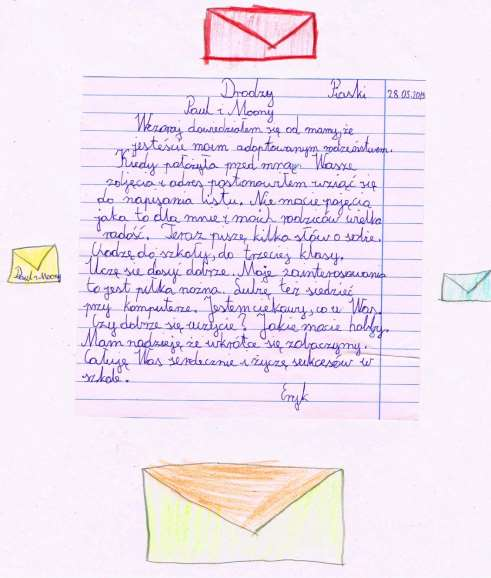 Drodzy Piaski 28.03.2019
Paul i Moony
Wczoraj dowiedziałem się od mamy, że
jesteście moim adoptowanym rodzeństwem.
Kiedy położyła przed mną Wasze
zdjęcia i adres postanowiłem wziąć się
do napisania listu. Nie macie pojęcia
jaka to dla mnie i moich rodziców wielka
radość. Teraz piszę kilka słów o sobie.
Chodzę do szkoły, do trzeciej klasy.
Uczę się dosyć dobrze. Moje zainteresowania
to jest piłka nożna. Lubię też siedzieć
przy komputerze. Jestem ciekawy, co u Was.
Czy dobrze się uczycie? Jakie macie hobby.
Mam nadzieję że wkrótce się zobaczymy.
Całuję Was serdecznie i życzę sukcesów w
szkole.
Eryk
Paul i Moony